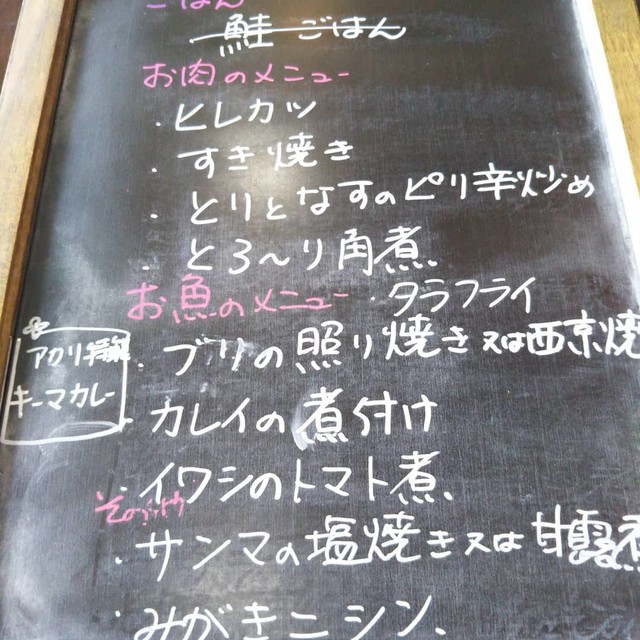 ごはん
鮭ごはん
お肉のメニュー
・ヒレカツ
・すき焼き
・とりとなすのピリ辛炒め
・とろ〜り角煮
お魚のメニュー
・タラフライ
・ブリの照り焼き又は西京焼
アカリ
キーマカレー
・カレイの煮付け
・イワシのトマト煮
・サンマの塩焼き又は甘露煮
・みがきニシン